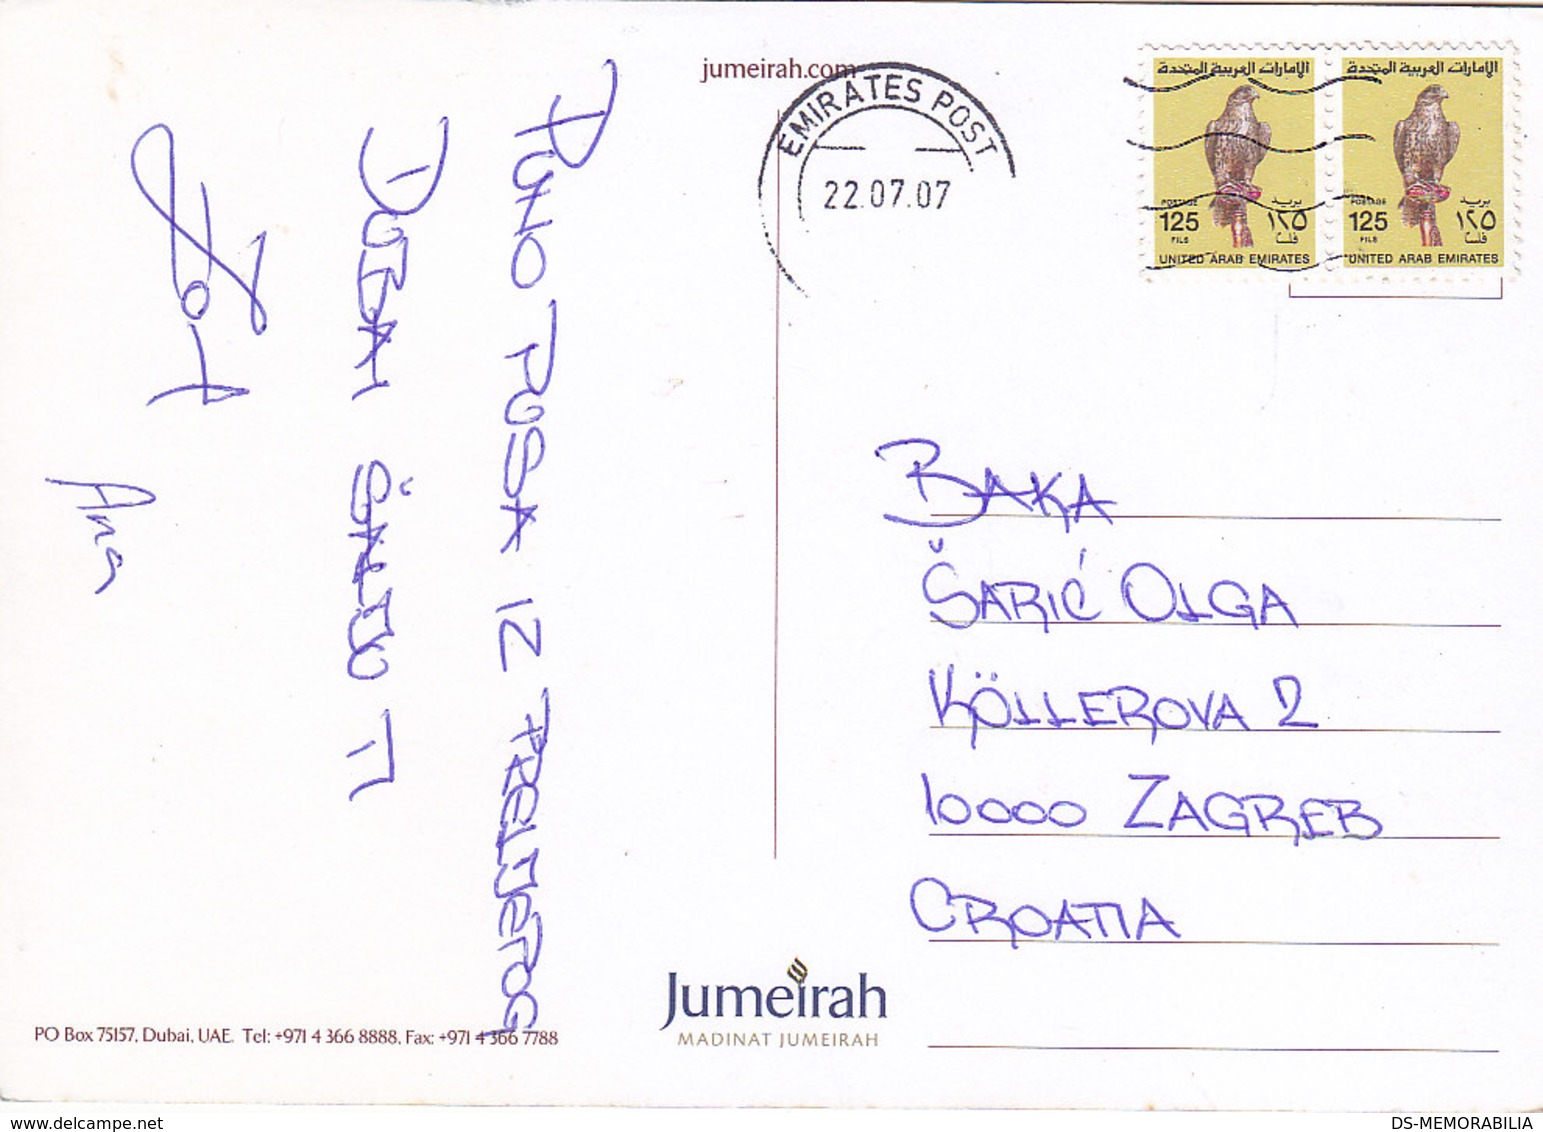 jumeirah.com
EMIRATES POST
22.07.07
الإمارات العربية المتحدة
POSTAGE
125
FILS
بريد
١٢٥
فلسا
UNITED ARAB EMIRATES
الإمارات العربية المتحدة
POSTAGE
125
FILS
بريد
١٢٥
فلسا
UNITED ARAB EMIRATES
PUNO PUSA IZ PRELIJEPOG
DUBAI ŠALJU TI
Ana
BAKA
ŠARIĆ OLGA
KÖLLEROVA 2
10000 ZAGREB
CROATIA
Jumeirah
MADINAT JUMEIRAH
PO Box 75157, Dubai, UAE. Tel: +971 4 366 8888, Fax: +971 4 366 7788
www.delcampe.net
DS-MEMORABILIA